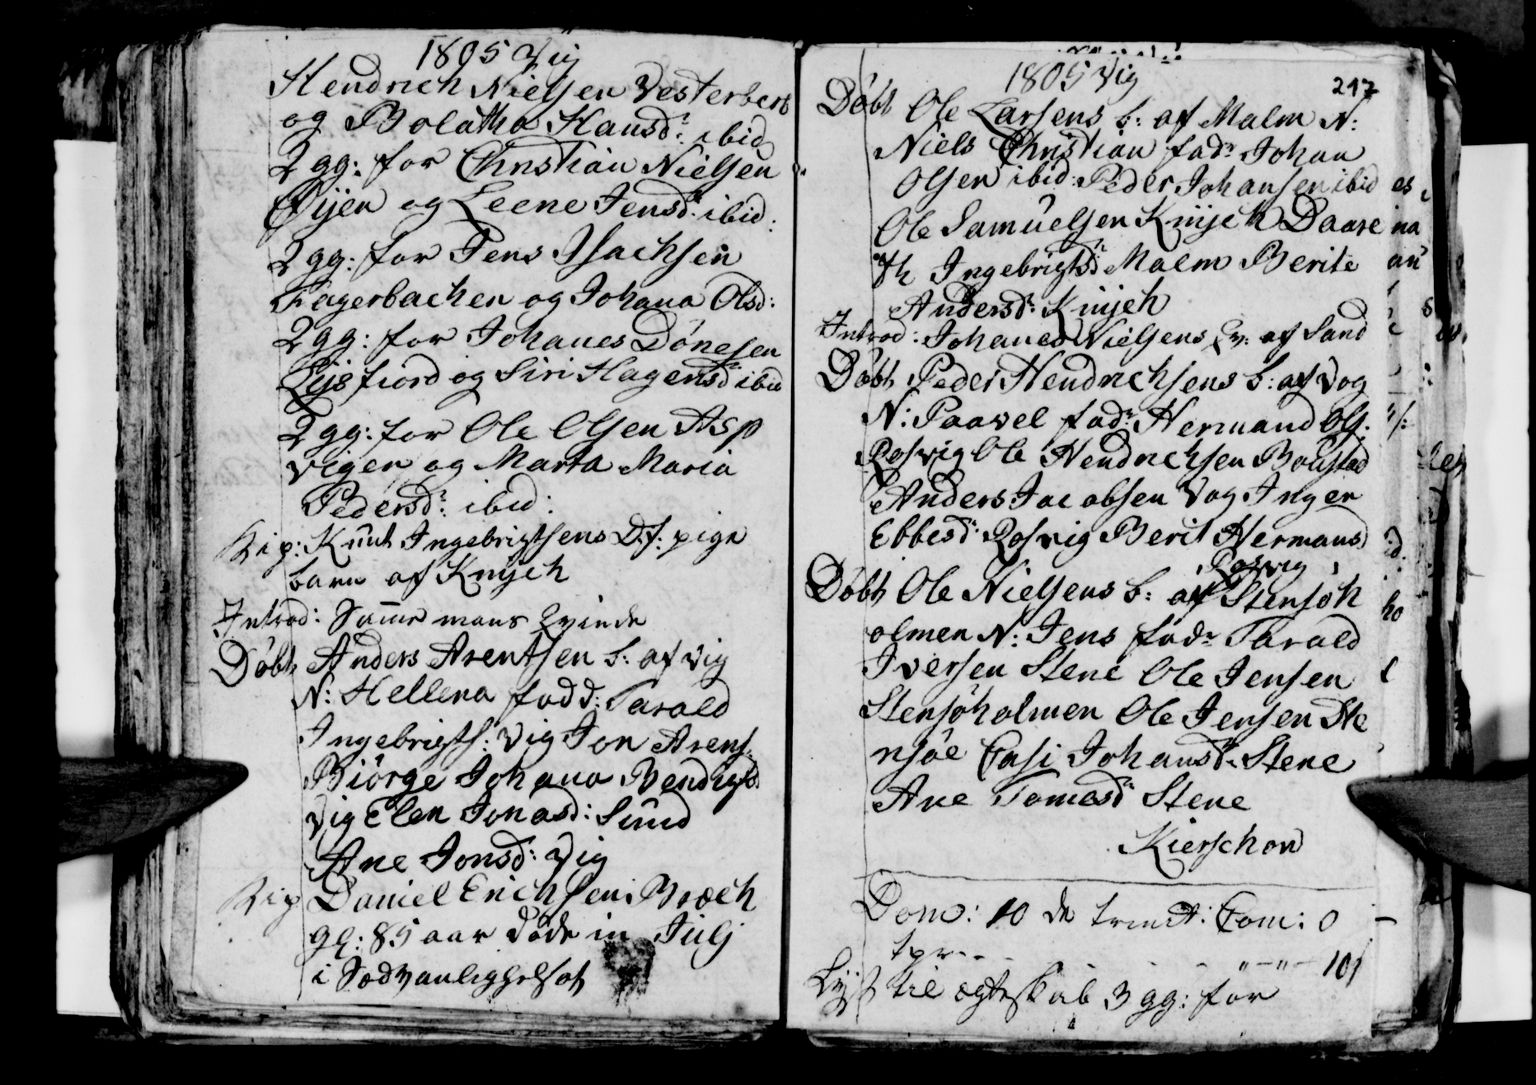 1805 Vig
Hendrich Nielsen Vesterbech
og Bolatha Hansd: ibid
2 gg: for Christian Nielsen
Øijen og Leene Jensd: ibid:
2 gg: for Jens Isachsen
Fagerbachen og Johana Olsd:
2 gg: for Johanes Dönesen
Lysfiord og Siri Hagensd ibid
2 gg: for Ole Olsen Asp
vigen og Marta Maria
Pedersd: ibid:
Knut Ingebrigtsens D.f: pige
barn af Knych
Introd: Samme mans Qvinde
Döbt Anders Arentsen b: af Vig
N: Hellena fadd: Tarald
Ingebrigts: Vig Jon Arens:
Biörge Johana Bendigsd
Vig Elen Jonasd: Sund
Ane Jonsd: Vig
Daniel Erichsen Broech
gl: 85 aar döde in Julj
i
1805 Vig
217
Döbt Ole Larsens b: af Malm N:
Niels Christian fadr Johan
Olsen ibid: Peder Johansen ibid
Ole Samuelsen Knych Daare
Ingebrigtsd: Malm Berite
Andersd: Knych
Introd: Johanes Nielsens Qv: af Sand
Döbt Peder Hendrichsens b: af Vog
N: Paavel fadr: Hermand Ols:
Rosvig Ole Hendrichsen Boustad
Anders Jacobsen Vog Inger
Ebbesd: Rosvig Berit Hermansd
Rosvig
Döbt Ole Nielsens b: af Stensöh
olmen N: Jens fadr Tarald
Iversen Stene Ole Jensen
Stensöholmen Ole Jensen Ste
nsöe Johansd: Stene
Ane Tomasd: Stene
Kierschou
Dom: 10 de trinit: Com: 0 —
101
Lyst til ægteskab 3 gg: for